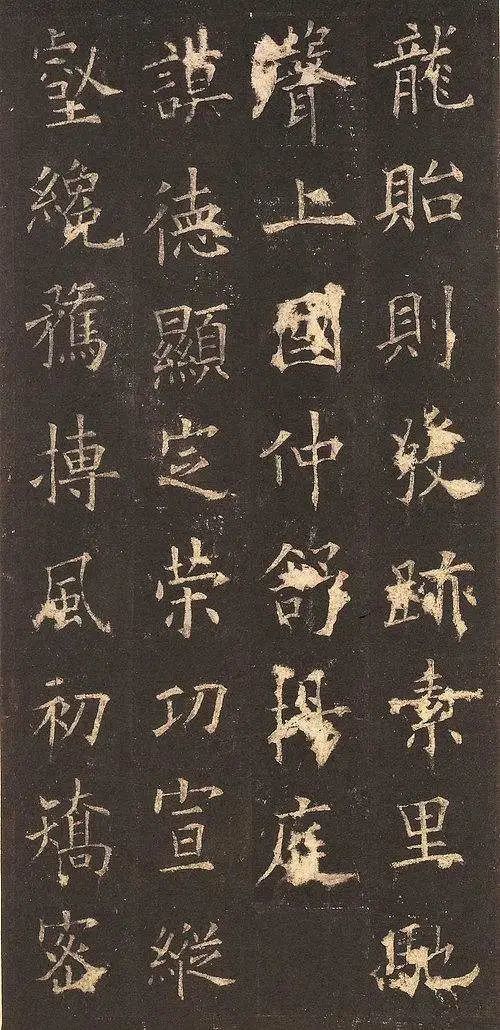 龍貽則發跡素里馳
聲上國仲舒庭
謨德顯定榮功宣縱
壑纔騖摶風初矯密